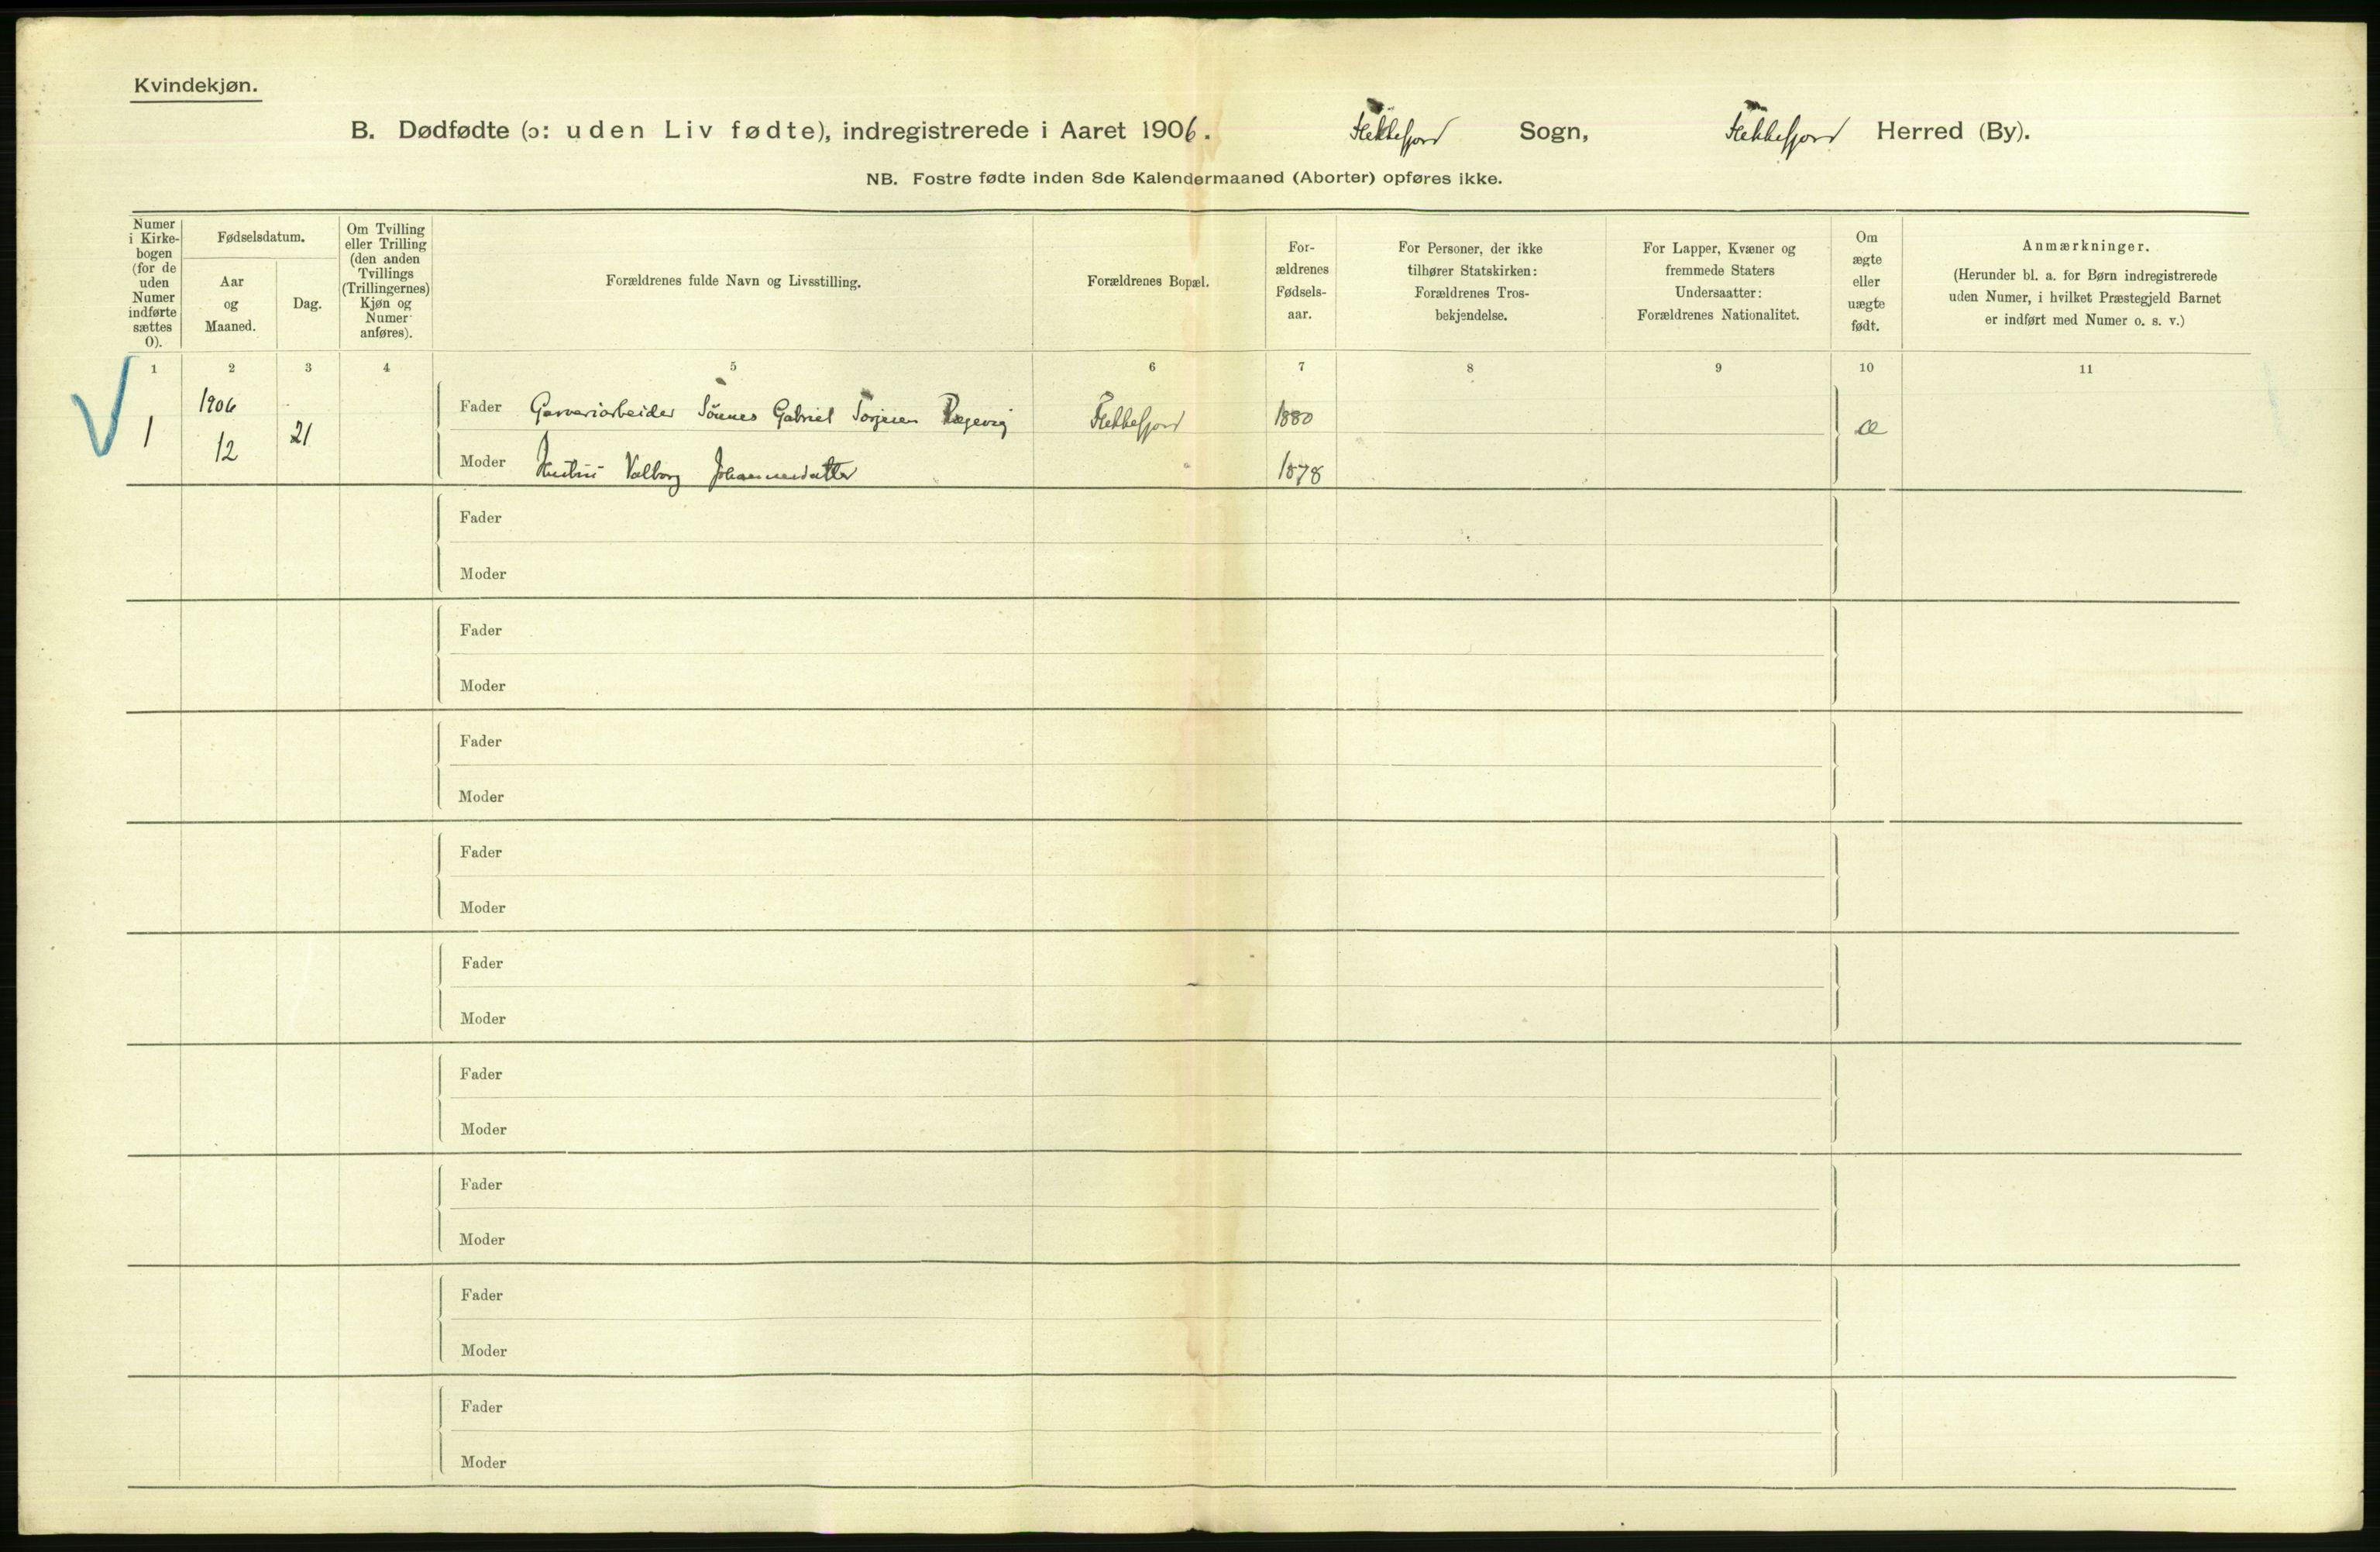 Kvindekjøn.
B. Dødfødte (ɔ: uden Liv fødte), indregistrerede i Aaret 1906. Flekkefjord Sogn, Flekkefjord Herred (By).
NB. Fostre fødte inden 8de Kalendermaaned (Aborter) opføres ikke.
Numer
i Kirke-
bogen
(for de
uden
Numer
indførte
sættes
0).
Fødselsdatum.
Aar
og
Maaned.
Dag.
Om Tvilling
eller Trilling
(den anden
Tvillings
(Trillingernes)
Kjøn og
Numer
anføres).
Forældrenes fulde Navn og Livsstilling.
Forældrenes Bopæl.
For-
ældrenes
Fødsels-
aar.
For Personer, der ikke
tilhører Statskirken:
Forældrenes Tros-
bekjendelse.
For Lapper, Kvæner og
fremmede Staters
Undersaatter:
Forældrenes Nationalitet.
Om
ægte
eller
uægte
født.
Anmærkninger.
(Herunder bl. a. for Børn indregistrerede
uden Numer, i hvilket Præstegjeld Barnet
er indført med Numer o. s. v.)
1 2 3 4 5 6 7 8 9 10 11
1906
Fader Garveriarbeider Tönnes Gabriel Torjusen Flekkefjord 1880
1 12 21 æ
Moder Hustru Valborg Johannesdatter 1878
Fader
Moder
Fader
Moder
Fader
Moder
Fader
Moder
Fader
Moder
Fader
Moder
Fader
Moder
Fader
Moder
Fader
Moder